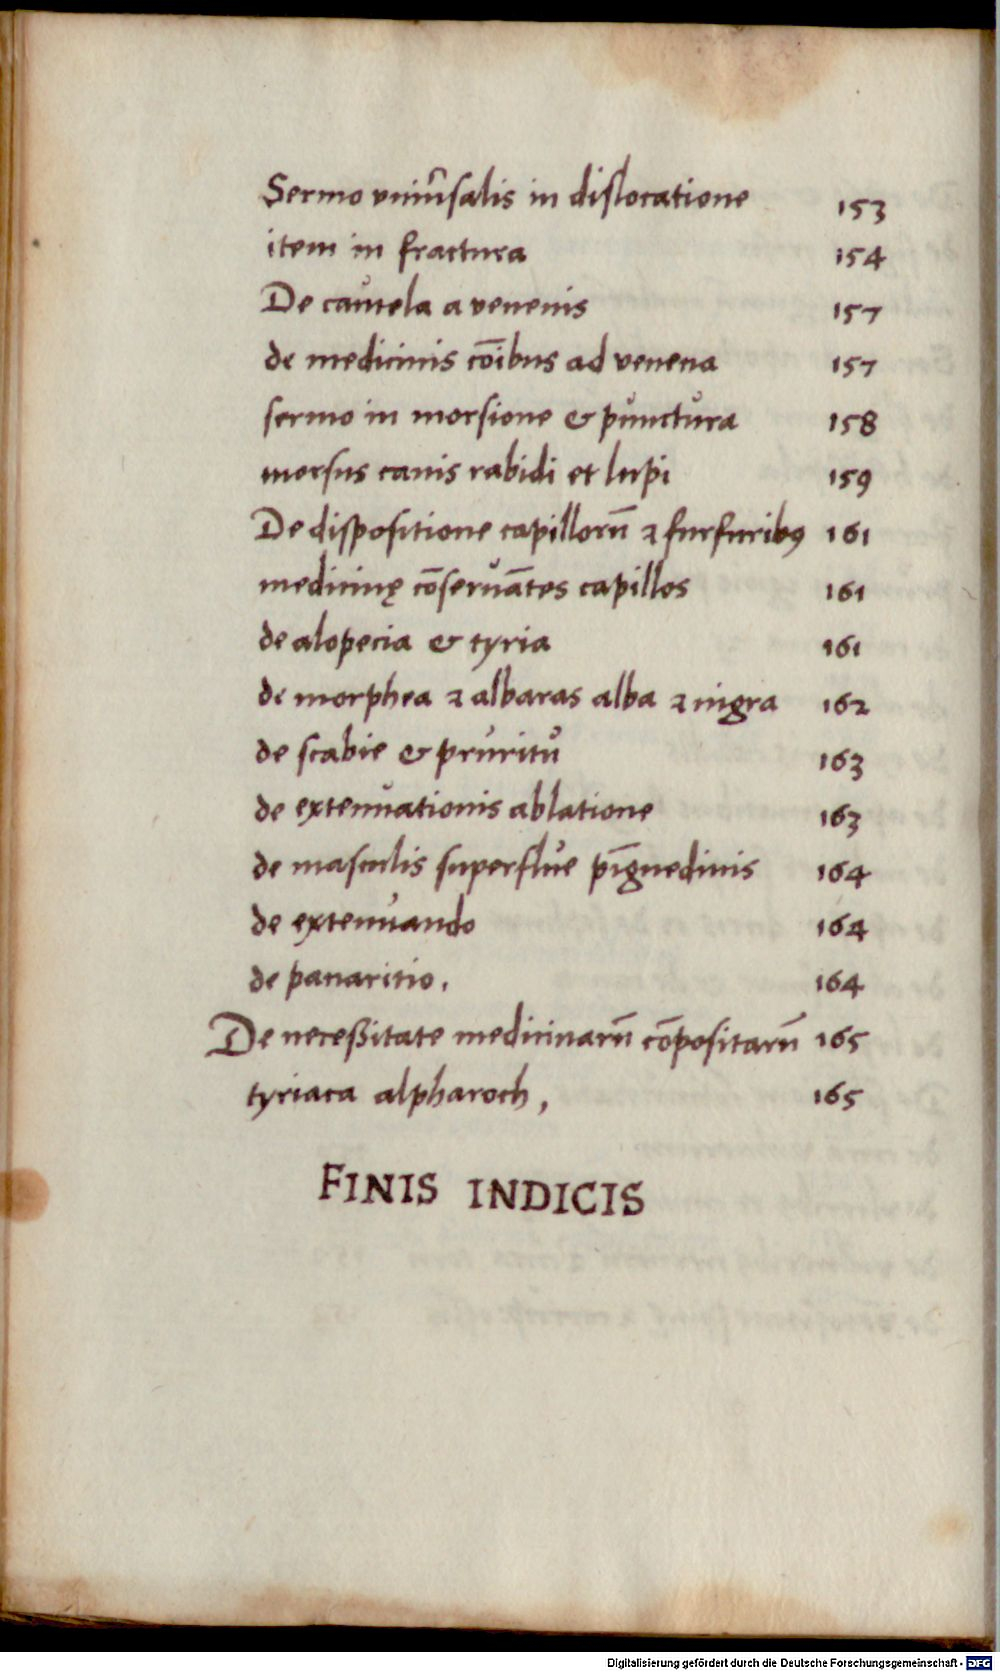 Sermo vniu̅salis in dislocatione 153
item in fractura 154
De cautela a venenis 157
de medicinis co̅ibus ad venena 157
sermo in morsione & punctura 158
morsus canis rabidi et lupi 159
De dispositione capilloru̅ ⁊ furfuribꝯ 161
medicinę co̅serva̅tes capillos 161
de alopecia & tyria 161
de morphea ⁊ albaras alba ⁊ nigra 162
de scabie & pruritu 163
de extenuationis ablatione 163
de masculis superflue pi̅guedinis 164
de extenuando 164
de panaritio. 164
De neceßitate medicinaru̅ co̅positaru̅ 165
tyriaca alpharoch, 165
FINIS INDICIS
Digitalisierung gefördert durch die Deutsche Forschungsgemeinschaft - DFG